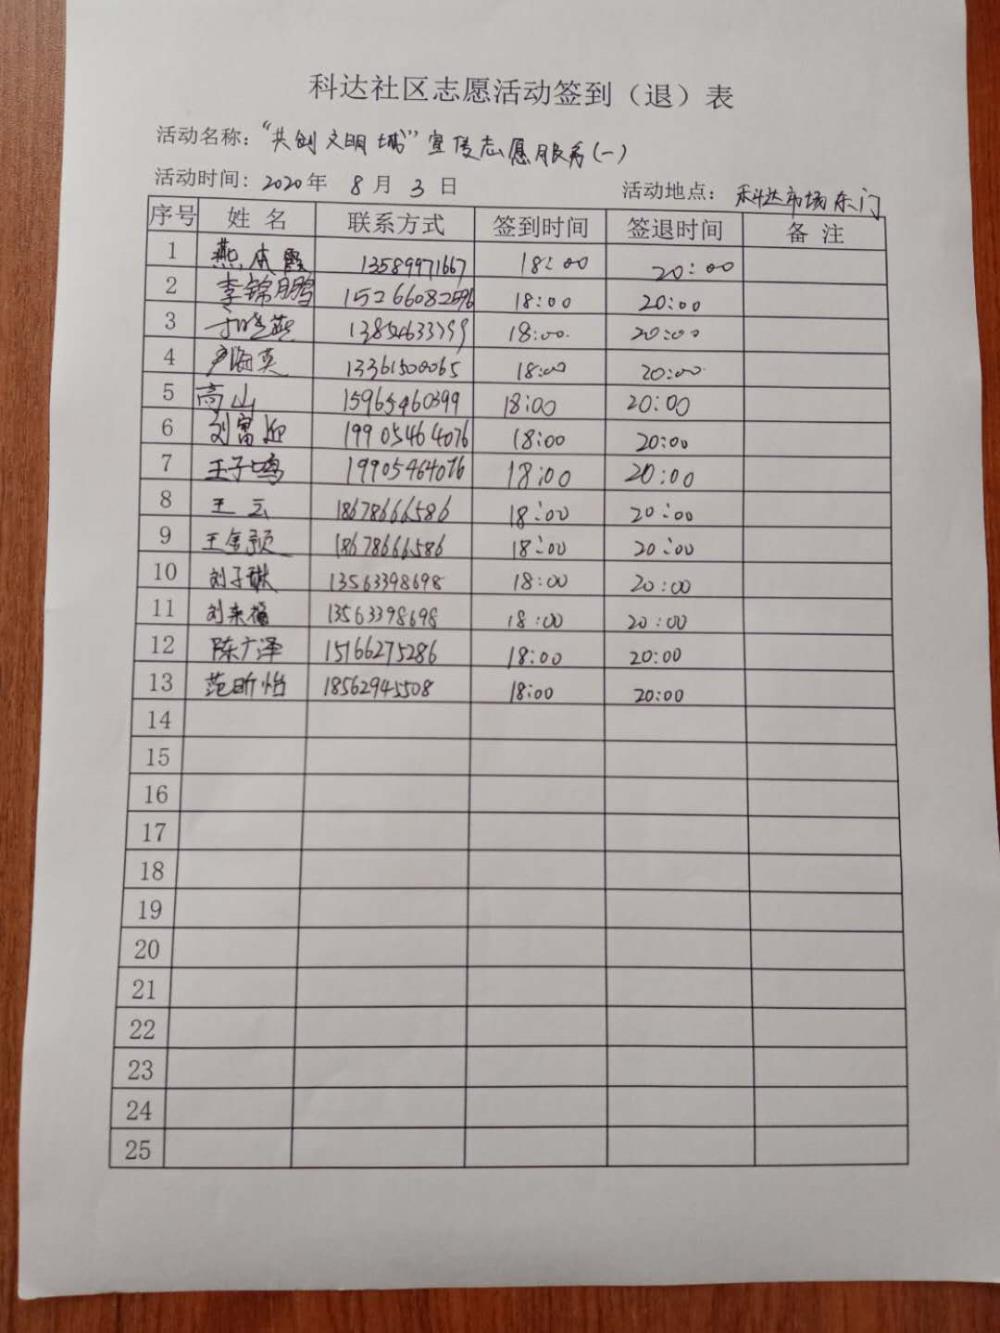 科达社区志愿活动签到（退）表
活动名称：“共创文明城”宣传志愿服务（一）
活动时间：2020年 8月 3日 活动地点：科达市场东门
序号 姓名 联系方式 签到时间 签退时间 备注
1 燕本霞 13589971667 18:00 20:00
2 李锦鹏 15266082596 18:00 20:00
3 18:00 20:00
4 13361500065 18:00 20:00
5 高山 15965460399 18:00 20:00
6 刘富迎 19905464076 18:00 20:00
7 王子鸣 19905464076 18:00 20:00
8 王云 18678666586 18:00 20:00
9 18678666586 18:00 20:00
10 刘子琳 13563398698 18:00 20:00
11 刘来福 13563398698 18:00 20:00
12 陈广泽 15166275286 18:00 20:00
13 范昕怡 18562945508 18:00 20:00
14
15
16
17
18
19
20
21
22
23
24
25